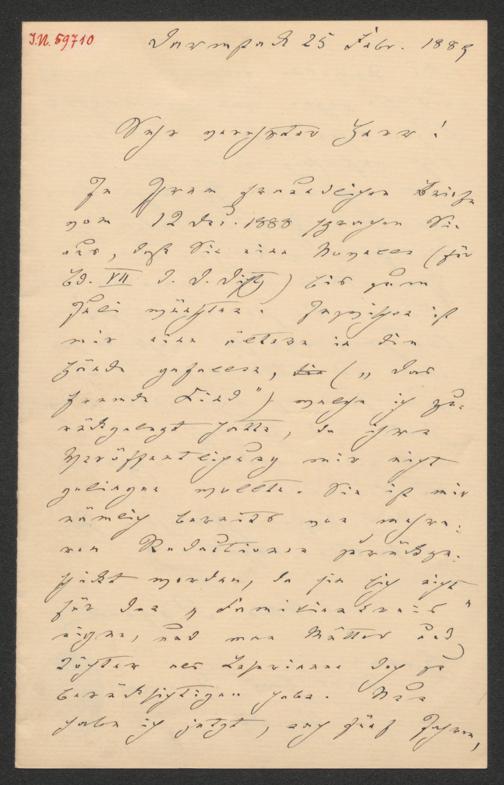 J.N. 59710
Darmstadt 25 Febr. 1889
Sehr verehrter Herr!
In Ihrem freundlichen Briefe
vom 12 Dez. 1888 sprachen Sie
aus, daß Sie eine Novelle (für
Bd. VII d. D. Dicht) bis zum
Juli wünschten. Inzwischen ist
mir eine ältere in die
Hände gefallen, („das
fremde Kind") welche ich zu-
rückgelegt hatte, da ihre
Veröffentlichung mir nicht
gelingen wollte. Sie ist mir
nämlich bereits von mehre-
ren Redactionen zurückge-
schickt worden, da sie sich nicht
für den „Familienkreis"
eigne, und man Mütter und
Töchter als Leserinnen doch zu
berücksichtigen habe. Nun
habe ich jetzt, nach fünf Jahren,